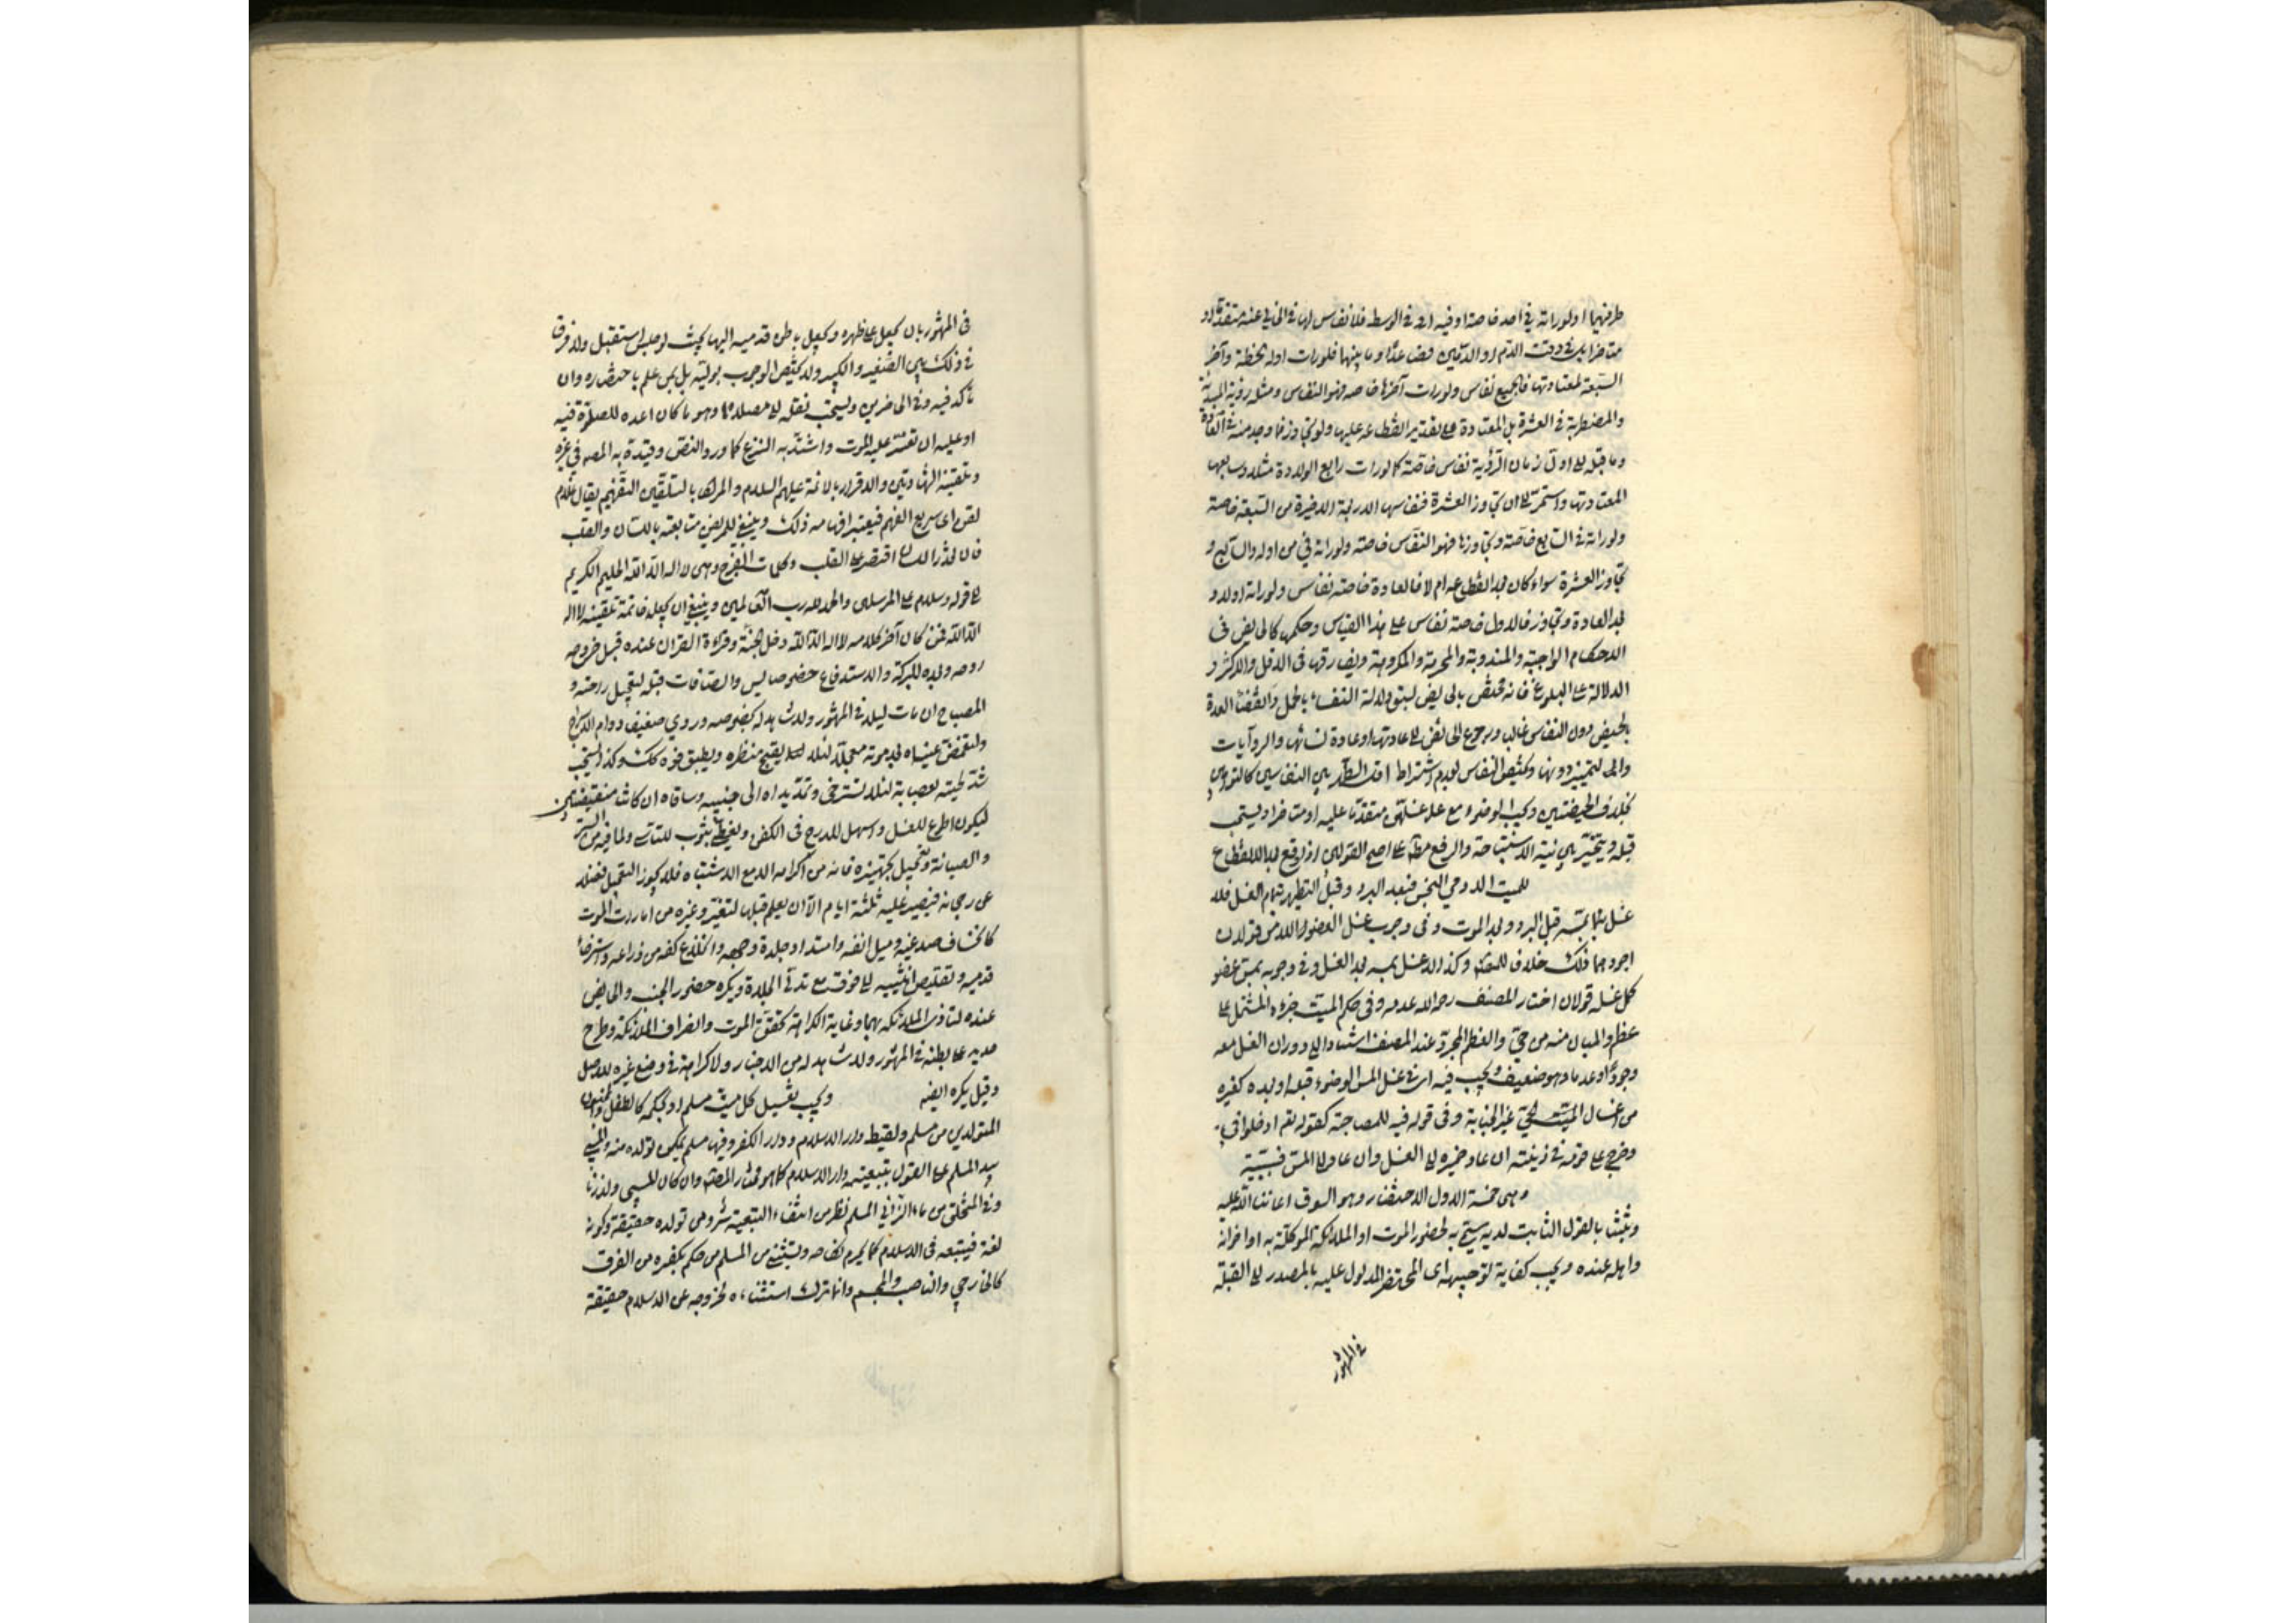 طرفيهما او لو راته في احد خاصة او فيه اي في الوسط فلا نفاس لها في الخالي عنه متقدما و
متاخرا بل في وقت الدم او الدمين فصاعدا وما بينهما فلو رات اوله لحظة وآخر
السبعة لمعتادتها فالجميع نفاس ولو رات آخرها خاصه فهو النفاس ومثله رؤية المبتدئة
والمضطربة في العشرة بل المعتادة على تقدير انقطاعه عليها ولو تجاوزها وجد منه في العادة
وما قبله الى اول زمان الرؤية نفاس خاصة كما لو رات رابع الولادة مثلا وسابعها
لمعتادتها واستمر الى ان تجاوز العشرة فنفاسها الاربعة الاخيرة من السبعة خاصة
ولو راته في السابع خاصة وتجاوزها فهو النفاس خاصه ولو راته في من اوله والسابع و
تجاوز العشرة سواء كان بعد انقطاعه ام لا فالعادة خاصته نفاس ولو راته اولا و
بعد العادة وتجاوز فالاول خاصة نفاس على هذا القياس وحكمها كالحايض في
الاحكام الواجبة والمندوبة والمحرمة والمكروهة ويفارقها في الاقل والاكثر و
الدلالة على البلوغ فانه مختص بالحايض لسبق دلالة النفساء بالحمل وانقضاء العدة
بالحيض دون النفاس غالبا ورجوع الحائض الى عادتها وعادة نسائها والروايات
والى التمييز دونها ويختص النفاس بعدم اشتراط اقل الطهر بين النفاسين كالتوامين
بخلاف الحيضتين ويجب الوضوء مع غسلهن متقدما عليه او متاخرا ويستحب
قبله ويتخير بين نية الاستباحة والرفع مطلقا على اصح القولين اذا وقع بعد الانقطاع
للميت الادمي النجس فبعد البرد وقبل التطهير بتمام الغسل فلا
غسل بمسه قبل البرد وبعد الموت وفي وجوب غسل العضو اللامس قولان
اجودهما ذلك خلافا للمصنف وكذا لا غسل بمسه بعد الغسل وفي وجوبه بمس عضو
كمل غسله قولان اختار المصنف رحمه الله عدمه وفي حكم الميت جزءه المشتمل على
عظم والمبان منه من حي والعظم المجرد عند المصنف استنادا الى دوران الغسل معه
وجودا وعدما وهو ضعيف ويجب فيه اي في غسل المس الوضوء قبله او بعده كغيره
من اغسال الحي غير الجنابة وفي قوله فيه للمصاحبة كقوله تعالى ادخلوا في
وخرج على قومه في زينته ان عاد ضميره الى الغسل وان عاد الى المس فسببية
وهي خمسة الاول الاحتضار وهو السوق اعاننا الله عليه
وثبتنا بالقول الثابت لديه سمى به لحضور الموت او الملائكة الموكلة به او اخوانه
واهله عنده ويجب كفاية توجيهه اي المحتضر المدلول عليه بالمصدر الى القبلة
في المشهور
في المشهور بان يجعل على ظهره ويجعل باطن قدميه اليها بحيث لو جلس استقبل ولا فرق
في ذلك بين الصغير والكبير ولا يختص الوجوب بوليه بل بمن علم باحتضاره وان
تأكد فيه وفي الحاضرين ويستحب نقله الى مصلاه وهو ما كان اعده للصلوة فيه
او عليه ان تعسر عليه الموت واشتد به النزع كما ورد النص وقيده به المصنف في غيره
وتلقينه الشهادتين والاقرار بالائمة عليهم السلام والمراد بالتلقين التفهيم يقال غلام
لقن اي سريع الفهم فيعتبر افهامه ذلك وينبغي للمريض متابعته باللسان والقلب
فان تعذر اللسان اقتصر على القلب وكلمات الفرج وهي لا اله الا الله الحليم الكريم
الى قوله وسلام على المرسلين والحمد لله رب العالمين وينبغي ان يجعل خاتمة تلقينه لا اله
الا الله فمن كان آخر كلامه لا اله الا الله دخل الجنة وقراءة القران عنده قبل خروجه
روحه وبعده للبركة والاستدفاع خصوصا يس والصافات قبله لتعجيل راحته و
المصباح ان مات ليلا في المشهور ولا شاهد له بخصوصه وروي ضعيفا دوام الاسراج
ولتغمض عيناه بعد موته معجلا لئلا يقبح منظره ويطبق فوه كذلك وكذا يستحب
شد لحيته بعصابة لئلا تسترخي وتمد يداه الى جنبيه وساقاه ان كانتا منقبضتين
ليكون اطوع للغسل واسهل للدرج في الكفن ويغطى بثوب للتاسي ولما فيه من الستر
والصيانة وتعجيل تجهيزه فانه من اكرامه الا مع الاشتباه فلا يجوز التعجيل فضلا
عن رجحانه فيصبر عليه ثلثة ايام الا ان يعلم قبلها لتغير وغيره من امارات الموت
كانخساف صدغيه وميل انفه وامتداد جلدة وجهه وانخلاع كفه من ذراعه واسترخاء
قدميه وتقليص انثييه الى فوق مع تدلي الجلدة ويكره حضور الجنب والحايض
عنده لتاذي الملائكة بهما وغاية الكراهة تحقق الموت وانصراف الملائكة وطرح
حديد على بطنه في المشهور ولا شاهد له من الاخبار ولا كراهة في وضع غيره للاصل
وقيل يكره ايضا ويجب تغسيل كل ميت مسلم او بحكمه كالطفل والمجنون
المتولدين من مسلم ولقيط دار الاسلام ودار الكفر وفيها مسلم يمكن تولده منه والمسبي
بيد المسلم على القول بتبعيته دار الاسلام كما هو مختار المصنف وان كان المسبي ولد زنا
وفي المتخلق من ماء الزاني المسلم نظر من انتفاء التبعية شرعا ومن تولده حقيقة وكونه
لغة فيتبعه في الاسلام كما يحرم نكاحه ويستثنى من المسلم من حكم بكفره من الفرق
كالخارجي والناصب والمجسم وانما ترك استثناءه لخروجه عن الاسلام حقيقة